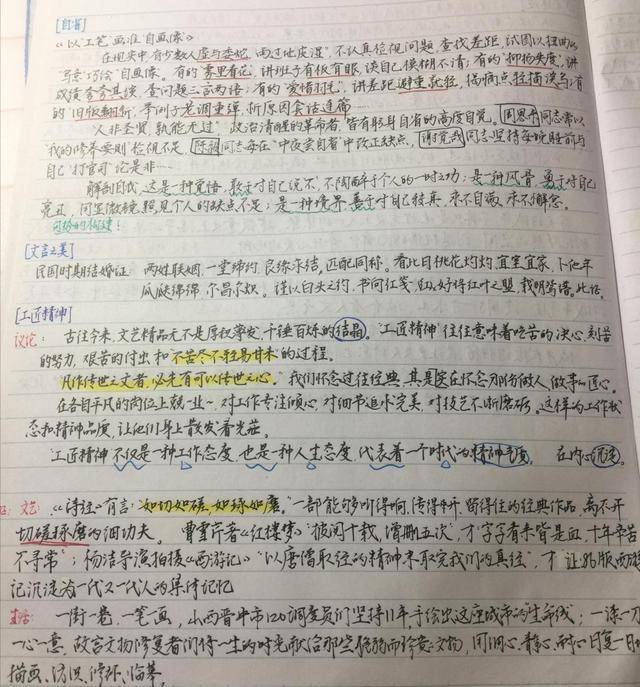 [自省]
《以"工笔"画准"自画像"》
在现实中,有少数人虚与委蛇,"两过地皮湿",不认真检视问题,查找差距,试图以扭曲的
写意"巧绘"自画像。有的"雾里看花",讲班子有板有眼,谈自己模糊不清;有的"抑扬失度",讲
成绩夸夸其谈,查问题三言两语;有的"爱惜羽毛",讲差距避重就轻,揭病点轻描淡写;有
的"旧版翻新",举例子老调重弹,析原因套话连篇……
"人非圣贤,孰能无过" 政治清醒的革命者,皆有躬身自省的高度自觉。周恩来同志常以
"我的修养要则"检视不足,陈毅同志每在"中夜尝自省"中改正缺点,谢觉哉同志坚持每晚睡前与
自己"打官司"论是非…
解剖自我,这是一种觉悟,敢于对自己说不,不陶醉于个人的一时之功;是一种风骨,勇于对自己
亮丑,用显微镜照见个人的缺点不足;是一种境界,善于对自己较真,永不自满,永不懈怠。
[文言之美]
民国时期结婚证: 两姓联姻,一堂缔约,良缘永结,匹配同称。看此日桃花灼灼,宜室宜家,卜他年
瓜瓞绵绵,尔昌尔炽。谨以白头之约,书向红笺,好将红叶之盟,载明鸳谱。此证。
[工匠精神]
议论: 古往今来,文艺精品无不是厚积薄发,千锤百炼的结晶。"工匠精神"往往意味着吃苦的决心,刻苦
的努力,艰苦的付出和不苦尽不轻易甘来的过程。
"凡作传世之文者,必先有可以传世之心。"我们怀念过往经典,其实是在怀念那份做人、做事的匠心。
在各自平凡的岗位上兢兢业业~,对工作专注倾心,对细节追求完美,对技艺不断磨砺。这样的工作状
态和精神品质,让他们身上散发着光茫。
"工匠精神"不仅是一种工作态度,也是一种人生态度,代表着一个时代的精神气质。 在内心沉淀。
文艺: 《诗经》有言:"如切如磋,如琢如磨。"一部能够叫得响、传得开、留得住的经典作品,离不开
切磋琢磨的细功夫。 曹雪芹者《红楼梦》"披阅十载,增删五次",才"字字看来皆是血,十年辛苦
不寻常";杨洁导演拍摄《西游记》"以唐僧取经的精神来取完我们的真经",才让86版西游
记沉淀为一代又一代人的集体记忆
生活: 一街一巷,一笔一画,山西晋中市120调度员们坚持11年手绘出这座城市的生命线;一漆一刀
一心一意,故宫文物修复者们将一生的时光献给那些脆弱而珍贵的文物,用细心、静心、耐心日复一日地
描画、纺织、修补、临摹。